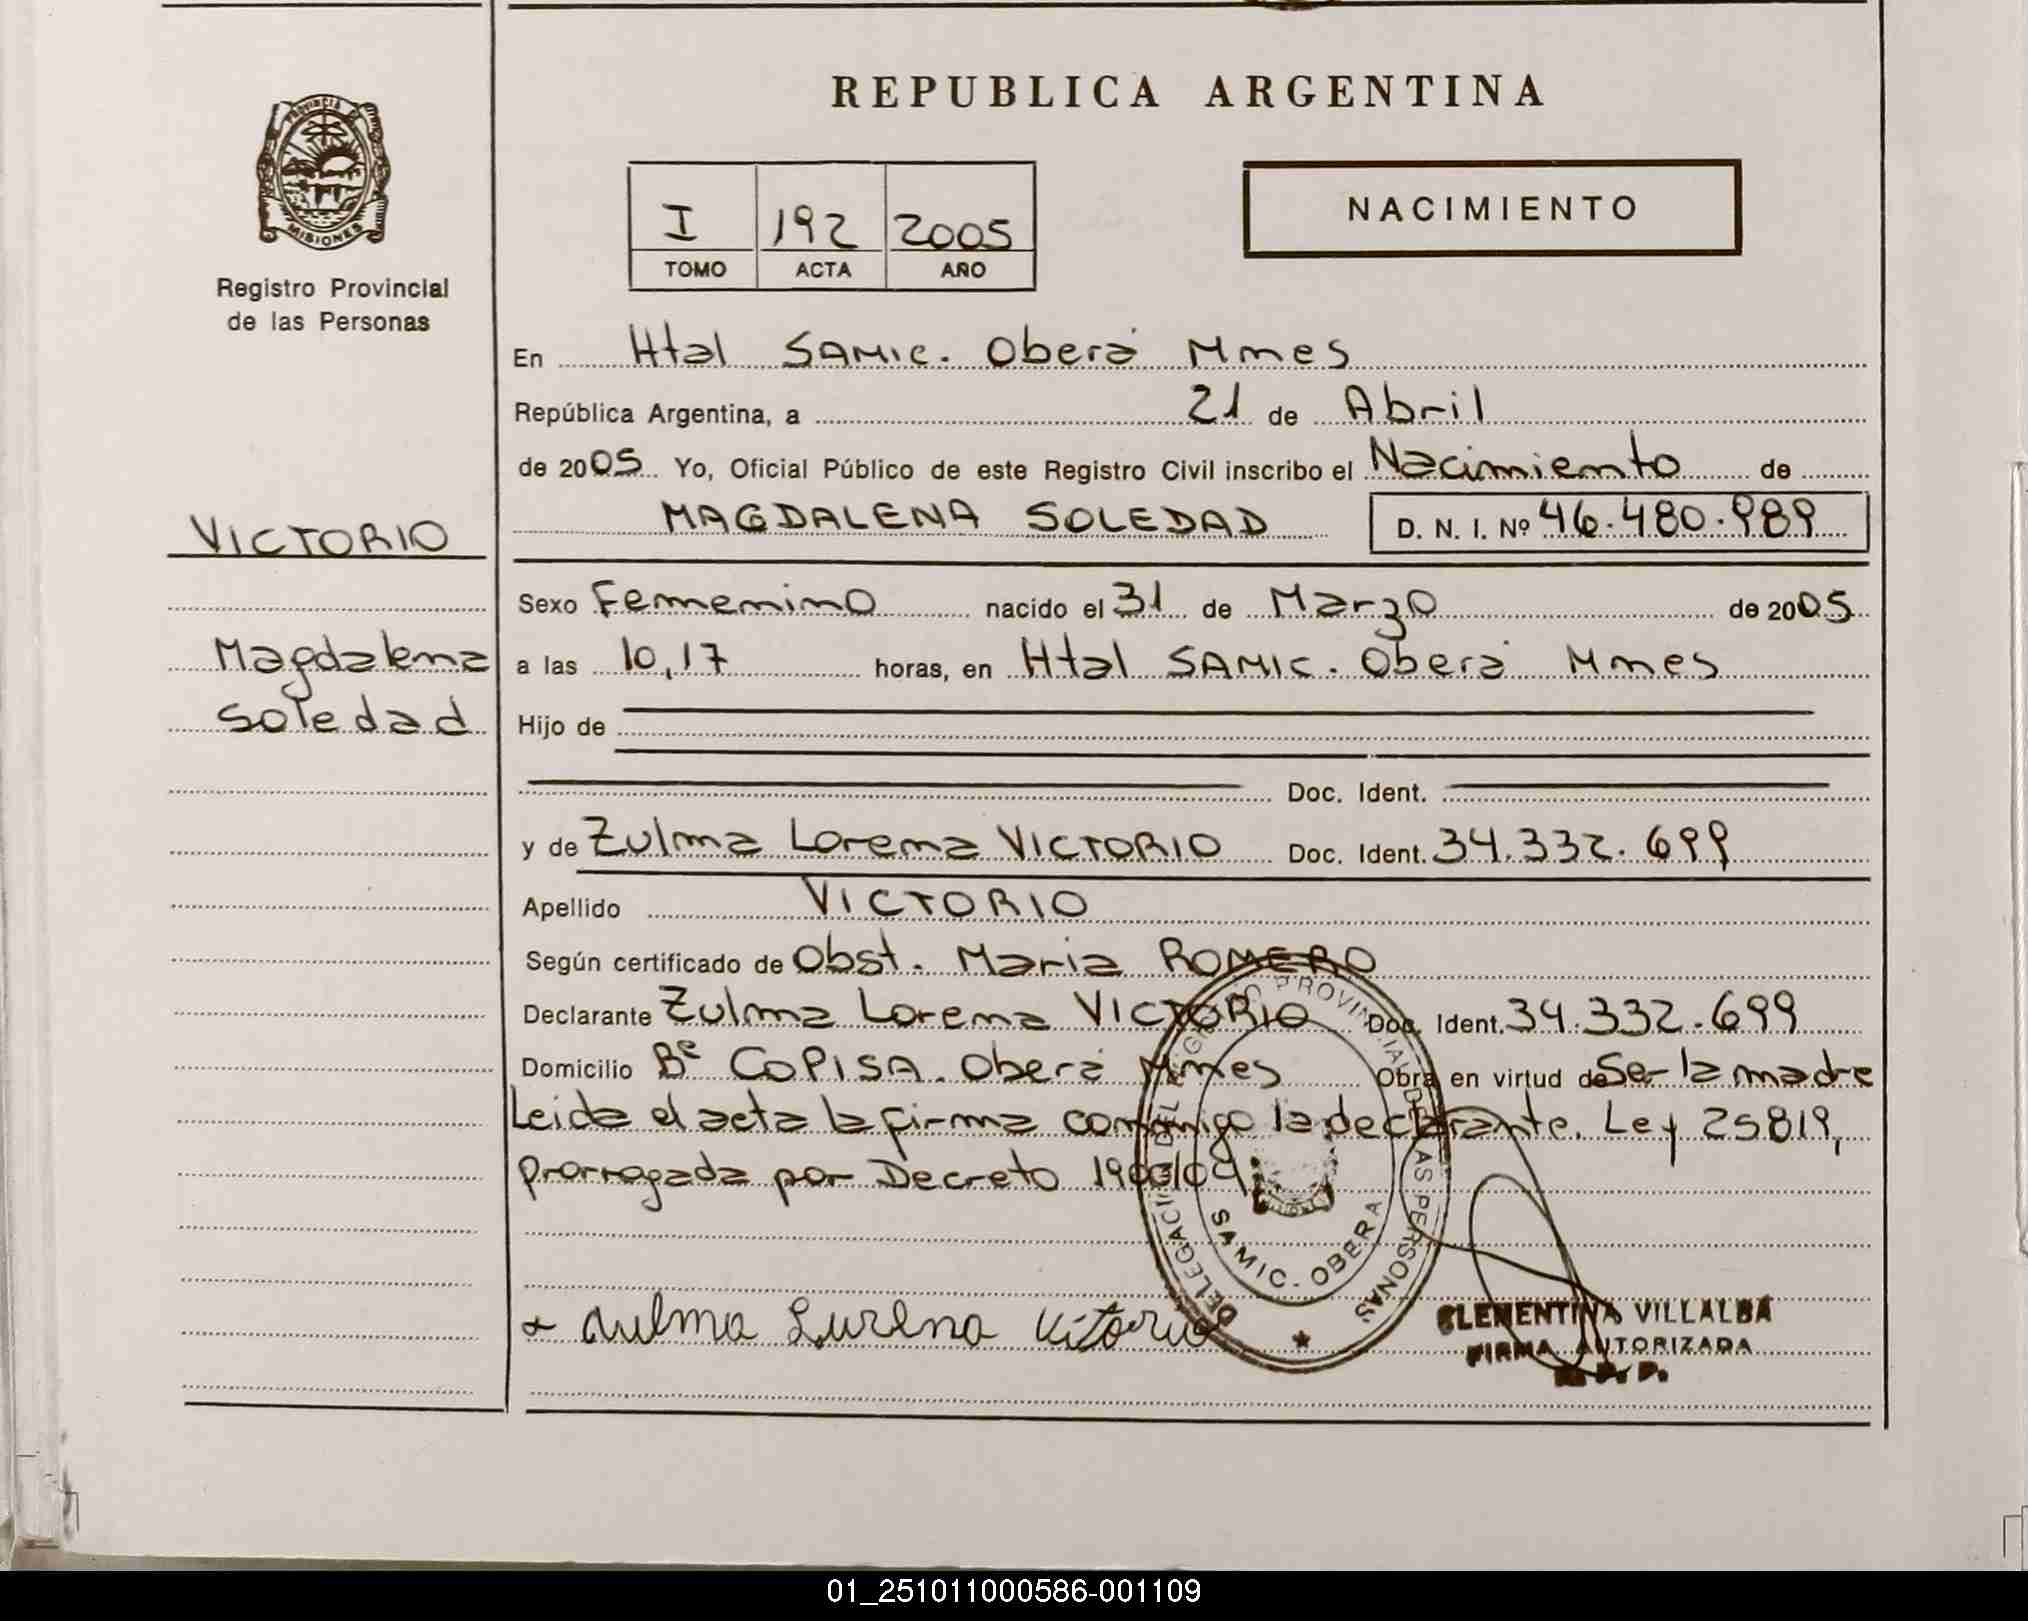 PROVINCIA DE
MISIONES
Registro Provincial
de las Personas
VICTORIO
Magdalena
Soledad
REPUBLICA ARGENTINA
I 192 2005
TOMO ACTA AÑO
NACIMIENTO
En Htal SAMIC. Oberá Mnes
República Argentina, a 21 de Abril
de 2005 Yo, Oficial Público de este Registro Civil inscribo el Nacimiento de
MAGDALENA SOLEDAD D. N. I. Nº 46.480.989
Sexo Femenino nacido el 31 de Marzo de 2005
a las 10,17 horas, en Htal SAMIC. Oberá Mnes
Hijo de
Doc. Ident.
y de Zulma Lorena VICTORIO Doc. Ident. 34.332.699
Apellido VICTORIO
Según certificado de Obst. Maria ROMERO
Declarante Zulma Lorena VICTORIO Doc. Ident. 34.332.699
Domicilio Bº COPISA. Oberá Mnes Obra en virtud de Ser la madre
Leida el acta la firma conmigo la declarante. Ley 25819,
prorrogada por Decreto 1900/04
DELEGACION DEL REGISTRO PROVINCIAL DE LAS PERSONAS
SAMIC. OBERA
Zulma Lurena Vitorio
CLEMENTINA VILLALBA
FIRMA AUTORIZADA
R. P. P.
01_251011000586-001109